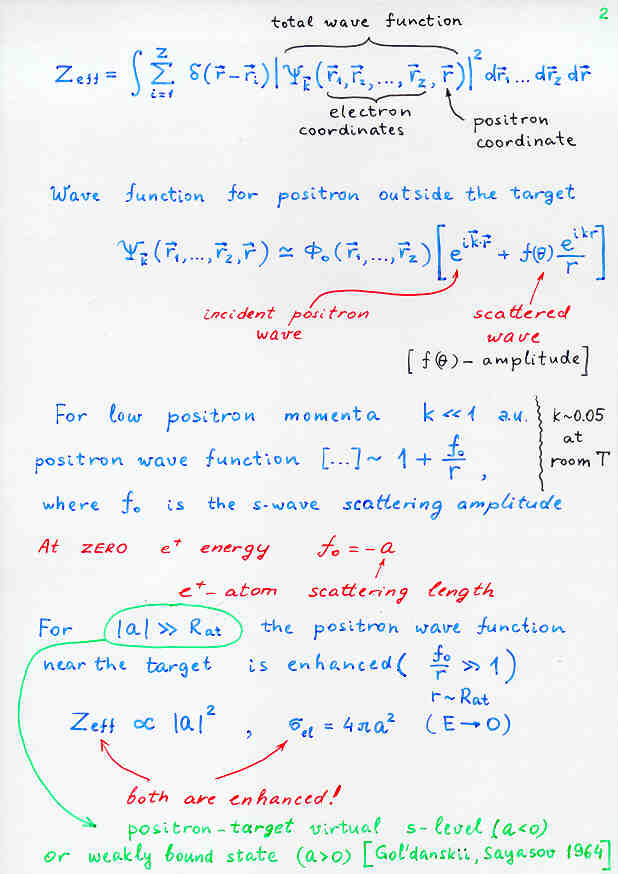 2
total wave function
Z_eff = ∫ Σ_{i=1}^{Z} δ(r⃗ − r⃗_i) |Ψ_k⃗ (r⃗_1, r⃗_2, ..., r⃗_Z, r⃗)|² dr⃗_1 ... dr⃗_Z dr⃗
electron coordinates
positron coordinate
Wave function for positron outside the target
Ψ_k⃗ (r⃗_1, ..., r⃗_Z, r⃗) ≃ Φ_0 (r⃗_1, ..., r⃗_Z) [e^{ik⃗·r⃗} + f(θ) e^{ikr}/r]
incident positron wave
scattered wave
[f(θ) – amplitude]
For low positron momenta k ≪ 1 a.u.
k~0.05 at room T
positron wave function [...] ~ 1 + f_0/r ,
where f_0 is the s-wave scattering amplitude
At ZERO e⁺ energy f_0 = −a
e⁺-atom scattering length
For |a| ≫ R_at the positron wave function
near the target is enhanced ( f_0/r ≫ 1 )
r ~ R_at
Z_eff ∝ |a|² , σ_el = 4πa² (E → 0)
both are enhanced!
positron-target virtual s-level (a<0)
or weakly bound state (a>0) [Gol'danskii, Sayasov 1964]